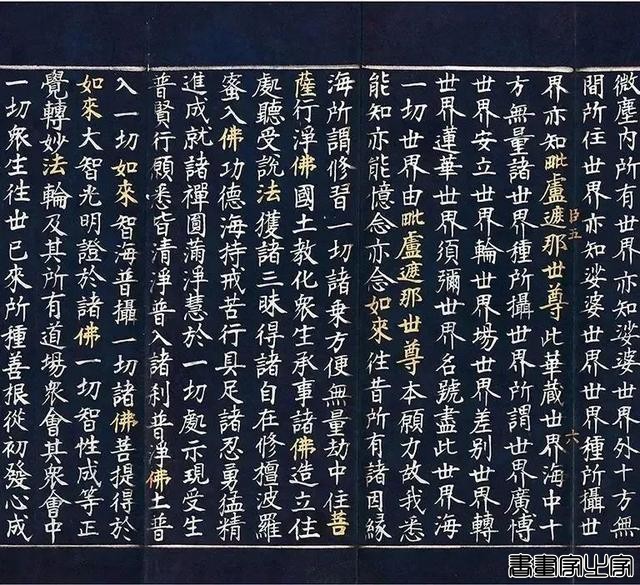 微塵內所有世界亦知娑婆世界外十方無
間所住世界亦知娑婆世界世界種所攝世
界亦知毗盧遮那世尊此華藏世界海中十
臣五
六
方無量諸世界種所攝世界所謂世界廣博
世界安立世界輪世界場世界差別世界轉
世界蓮華世界須彌世界名號盡此世界海
一切世界由毗盧遮那世尊本願力故我悉
能知亦能憶念亦念如來往昔所有諸因緣
海所謂修習一切諸乘方便無量劫中住菩
薩行淨佛國土教化眾生承事諸佛造立住
處聽受說法獲諸三昧得諸自在修檀波羅
蜜入佛功德海持戒苦行具足諸忍勇猛精
進成就諸禪圓滿淨慧於一切處示現受生
普賢行願悉皆清淨普入諸剎普淨佛土普
入一切如來智海普攝一切諸佛菩提得於
如來大智光明證於諸佛一切智性成等正
覺轉妙法輪及其所有道場眾會其眾會中
一切眾生往世已來所種善根從初發心成
書畫家之家